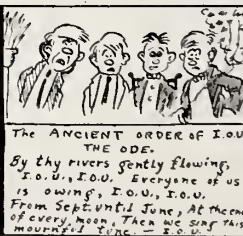 The ANCIENT ORDER OF I.O.U
THE ODE.
By thy rivers gently flowing,
I.O.U., I.O.U. Everyone of us
is owing, I.O.U., I.O.U.
From Sept. until June, At the end
of every moon, Then we sing this
mournful tune. — I.O.U.